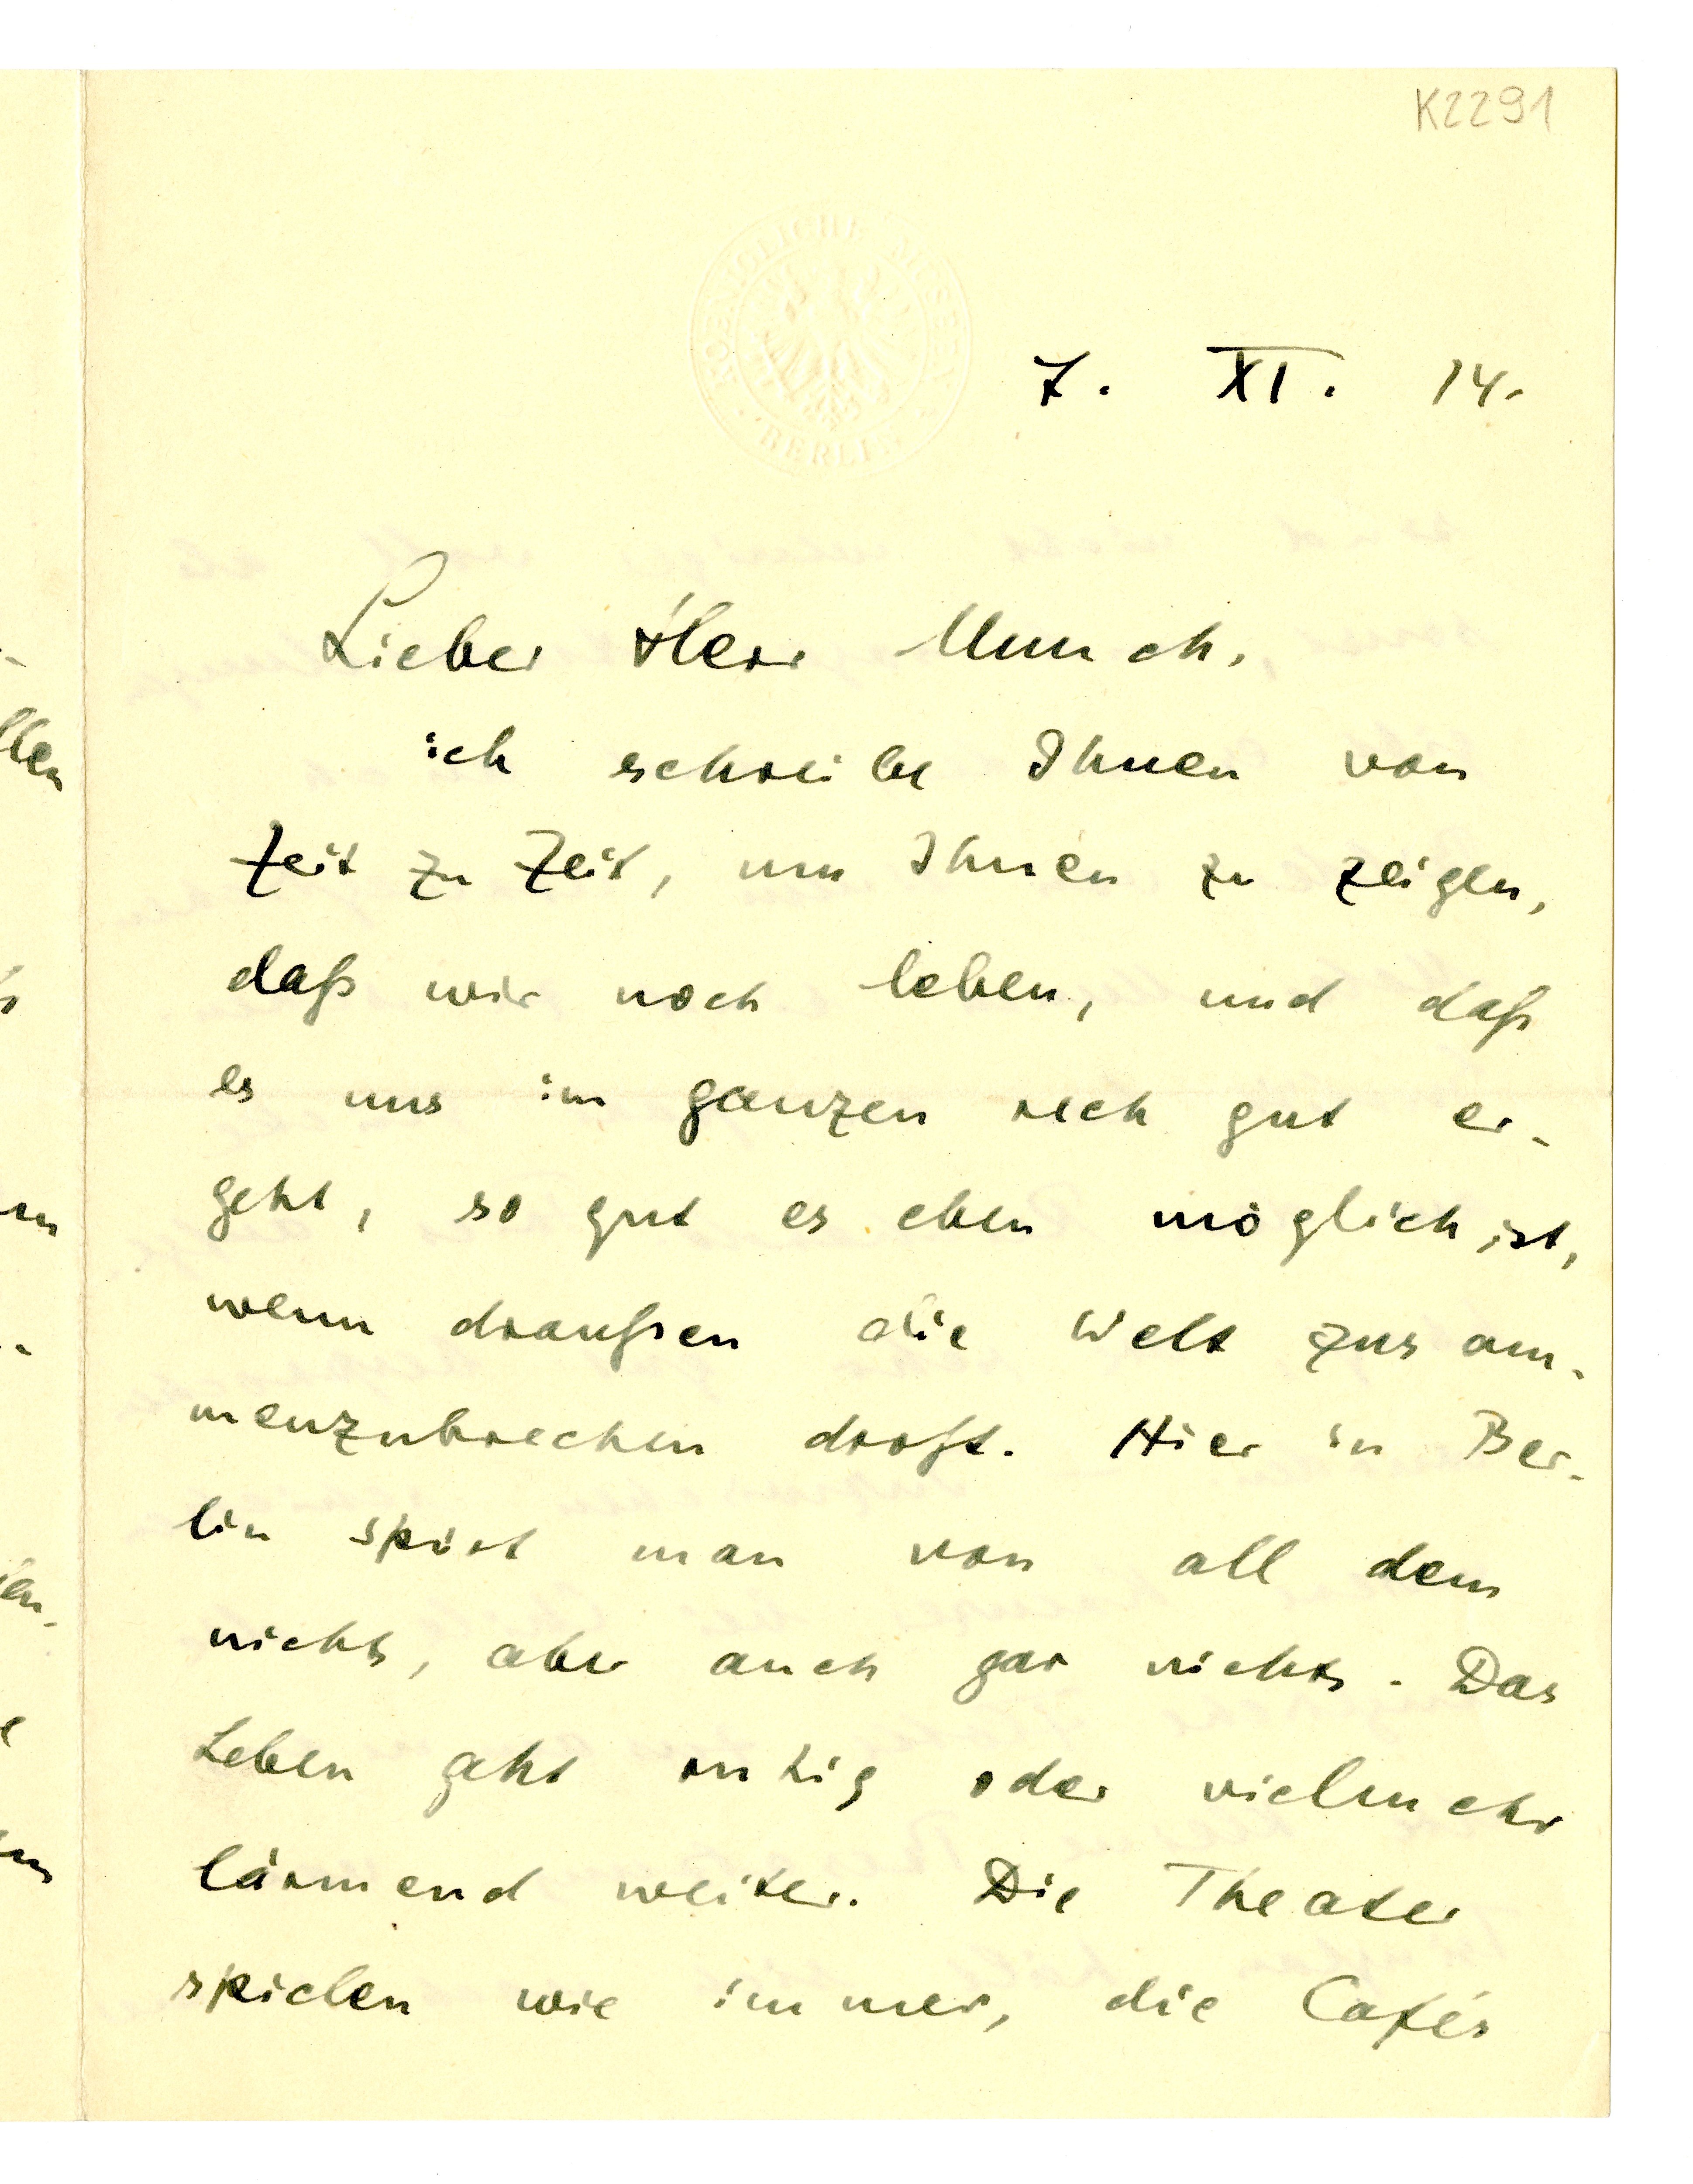 K2291
KOENIGLICHE MUSEEN
BERLIN
7. XI. 14.
Lieber Herr Munch,
ich schreibe Ihnen von
Zeit zu Zeit, um Ihnen zu zeigen,
daß wir noch leben, und daß
es uns im ganzen rech gut er-
geht, so gut es eben möglich ist,
wenn draußen die Welt zusam-
menzubrechen droht. Hier in Ber-
lin spürt man von all dem
nichts, aber auch gar nichts. Das
Leben geht ruhig oder vielmehr
lärmend weiter. Die Theater
spielen wie immer, die Cafés